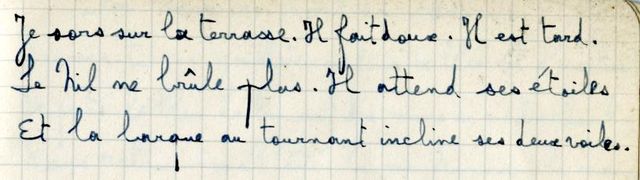 Je sors sur la terrasse. Il fait doux. Il est tard.
Le Nil ne brûle plus. Il attend ses étoiles
Et la barque au tournant incline ses deux voiles.